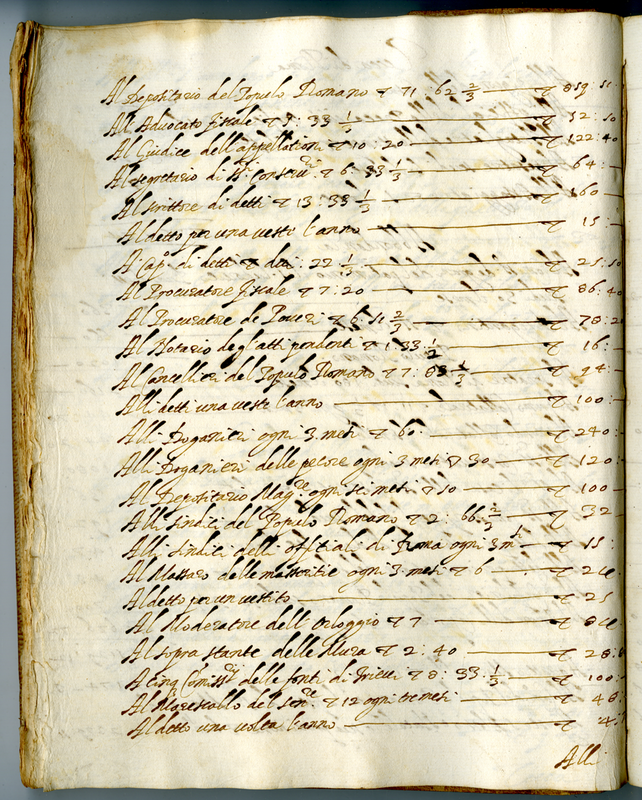 Al Depositario del Populo Romano ▽ 71 : 62 2/3 — ▽ 859 : 51
All Advocato fiscale ▽ 9 : 33 1/3 — ▽ 52 : 50
Al Giudice dell appellationi ▽ 10 : 20 — ▽ 122 : 40
Al segretario di SSri Conservri ▽ 6 : 33 1/3 — ▽ 64 : —
Al scrittore di detti ▽ 13 : 33 1/3 — ▽ 160 —
Al detto per una veste l'anno — ▽ 15 : —
A Capo di detti ▽ 22 1/3 — ▽ 25 : 50
Al Procuratore fiscale ▽ 7 : 20 — ▽ 86 : 40
Al Procuratore de Poveri ▽ 6 : 51 2/3 — ▽ 78 : 20
Al Notario degl'atti pendenti ▽ 1 : 33 1/2 — ▽ 16 : —
Al Cancellieri del Populo Romano ▽ 7 : 83 1/3 — ▽ 94 : —
Alli detti una veste l'anno — ▽ 100 : —
Alli Doganieri ogni 3 mesi ▽ 60 — ▽ 240 —
Alli Doganieri delle pecore ogni 3 mesi ▽ 30 — ▽ 120 —
Al Depositario Magre ogni sei mesi ▽ 50 — ▽ 100 —
Alli sindici del Populo Romano ▽ 2 : 66 2/3 — ▽ 32
Alli sindici delli offitiali di Roma ogni 3 msi — ▽ 15 :
Al Massaro delle massaritie ogni 3 mesi ▽ 6 — ▽ 24
Al detto per un vestito — ▽ 25
Al Moderatore dell Orloggio ▽ 7 — ▽ 84
Al soprastante delle Mura ▽ 2 : 40 — ▽ 28 :
A cinq Comissri delle fonti di Trievi ▽ 8 : 33 1/3 — ▽ 100 :
Al Marescallo del Senre ▽ 12 ogni tre mesi — ▽ 48
Al detto una volta l'anno — ▽ 4
Alli